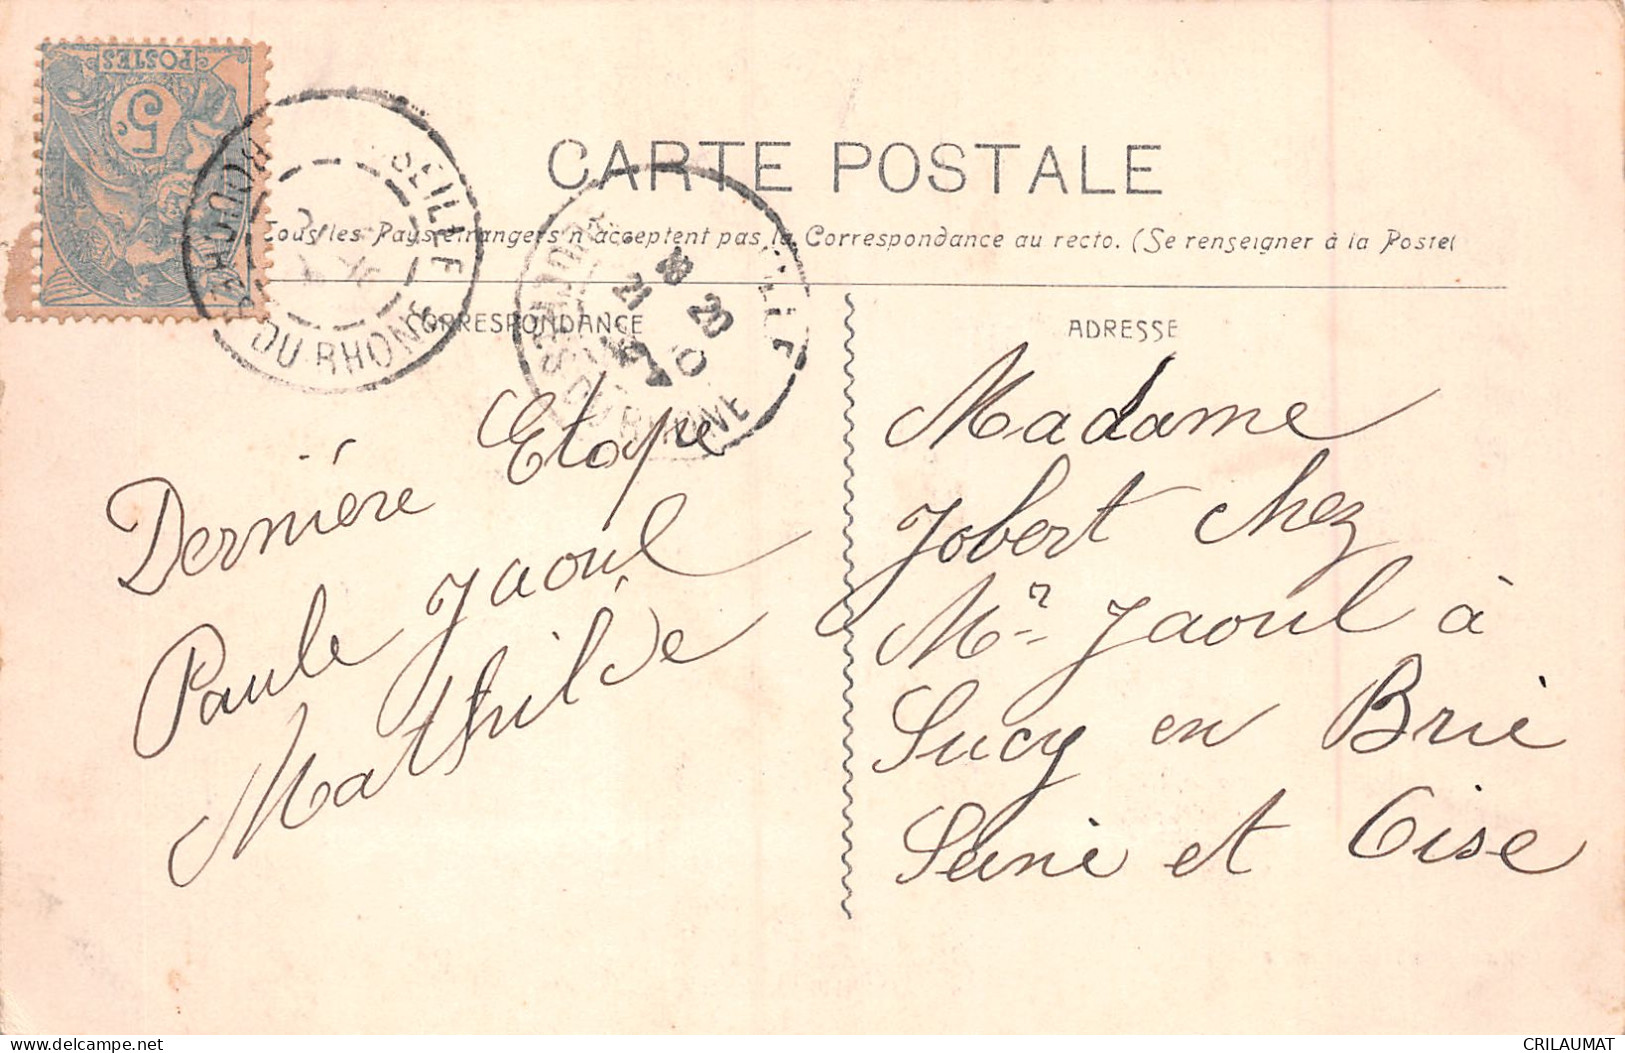 POSTES
5c
CARTE POSTALE
Tous les Pays étrangers n'acceptent pas la Correspondance au recto. (Se renseigner à la Poste)
CORRESPONDANCE
ADRESSE
SEILLE
BOUCHES DU RHONE
18 20
21
Dernière Etape
Paule Jaoul
Mathilde
Madame
Jobert chez
Mr Jaoul à
Sucy en Brie
Seine et Oise
CRILAUMAT